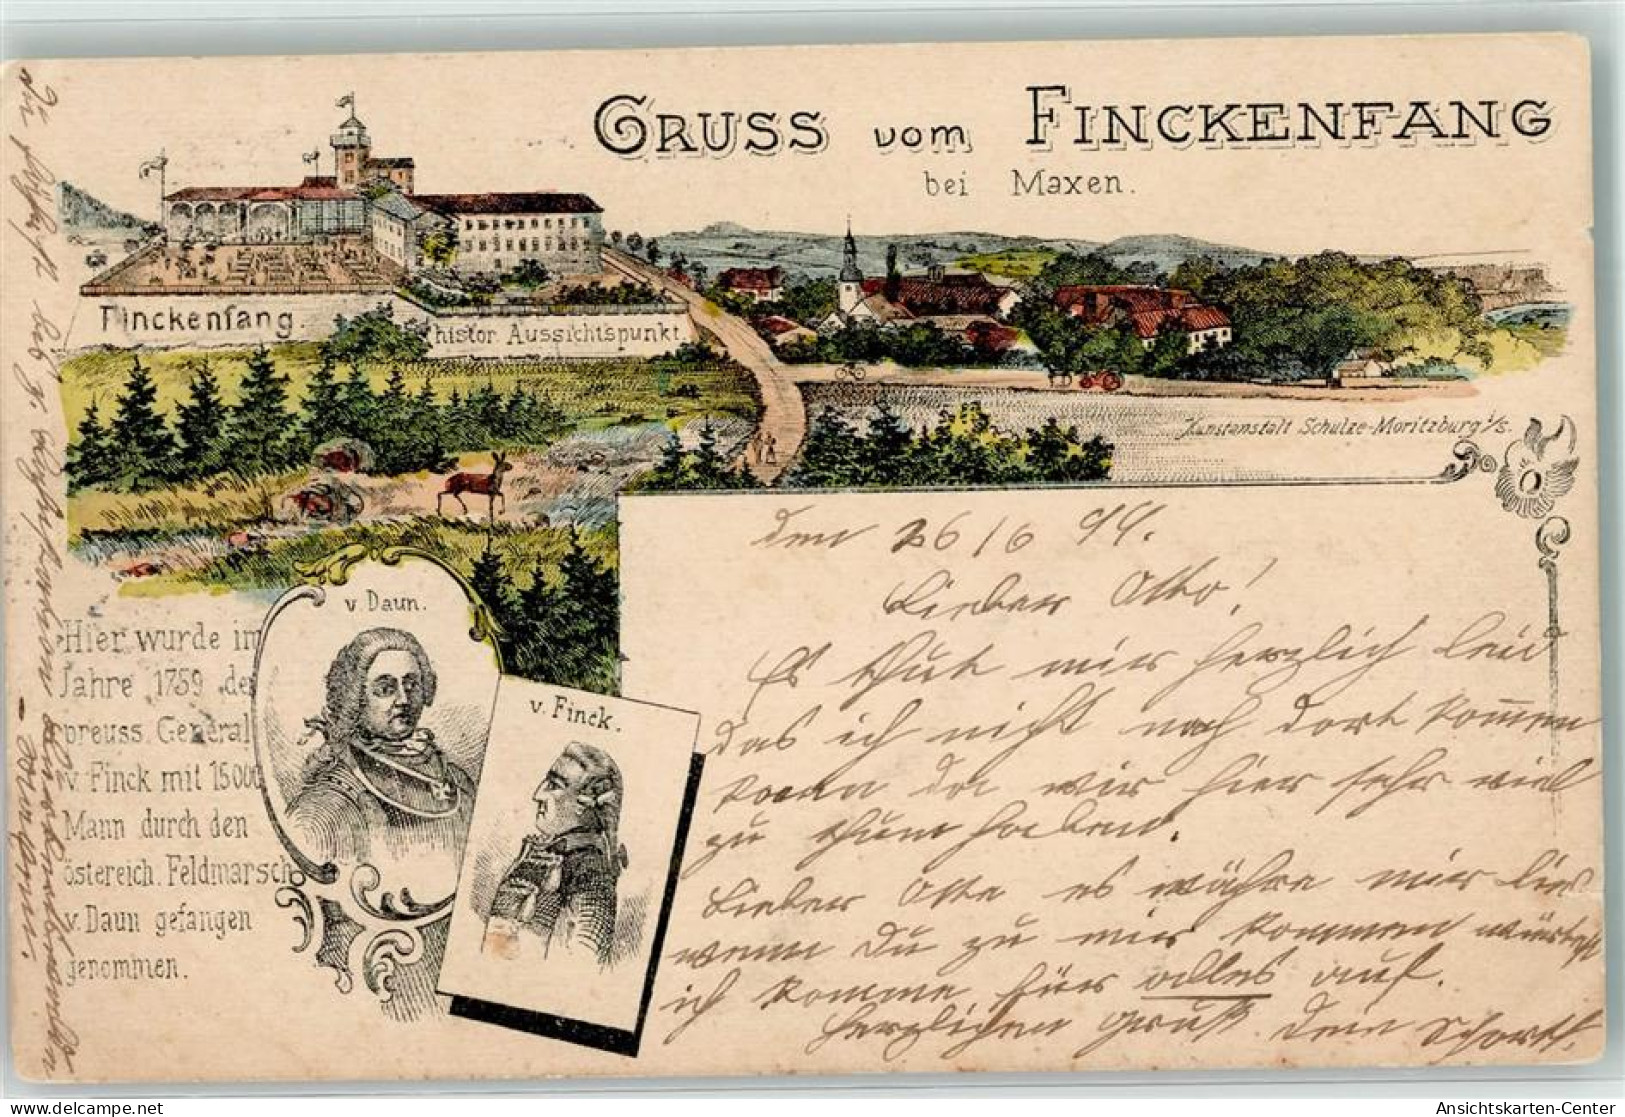 GRUSS vom FINCKENFANG
bei Maxen.
Finckenfang.
histor. Aussichtspunkt.
Kunstanstalt Schulze-Moritzburg i/S.
v Daun.
v. Finck.
Hier wurde im
Jahre 1759 der
preuss. General
v. Finck mit 15000
Mann durch den
östereich. Feldmarsch
v. Daun gefangen
genommen.
den 26/6 99.
Lieber Otto!
Es thut mir herzlich leid
das ich nicht nach dort kommen
kann da wir hier sehr viel
zu thun haben.
Lieber Otto es wäre mir lieb
wenn Du zu mir kommen würdest
ich komme für alles auf.
Herzlichen Gruß. Dein
Ansichtskarten-Center
delcampe.net